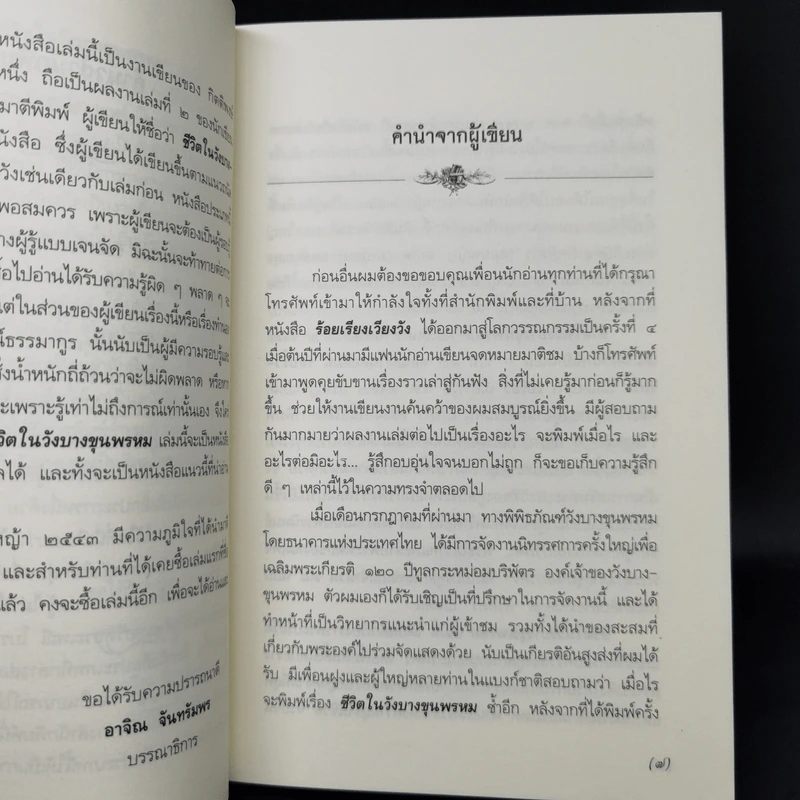 หนังสือเล่มนี้เป็นงานเขียนของ
หนึ่ง ถือเป็นผลงานเล่มที่ ๒ ของนักเขียน
มาตีพิมพ์ ผู้เขียนให้ชื่อว่า ชีวิตในวังบาง-
ซึ่งผู้เขียนได้เขียนขึ้นตามแนวถนัด
วังเช่นเดียวกับเล่มก่อน หนังสือประเภทนี้
พอสมควร เพราะผู้เขียนจะต้องเป็นผู้รอบรู้
ผู้รู้แบบเจนจัด มิฉะนั้นจะท้าทายต่อการ
ไปอ่านได้รับความรู้ผิด ๆ พลาด ๆ จะ
แต่ในส่วนของผู้เขียนเรื่องนี้หรือเรื่องทำนอง
นั้นนับเป็นผู้มีความรอบรู้และ
น้ำหนักถี่ถ้วนว่าจะไม่ผิดพลาด หรือหาก
เพราะรู้เท่าไม่ถึงการณ์เท่านั้นเอง จึงใคร่
ชีวิตในวังบางขุนพรหม เล่มนี้จะเป็นหนังสือ
ได้ และทั้งจะเป็นหนังสือแนวนี้ที่น่าอ่าน
๒๕๔๓ มีความภูมิใจที่ได้นำมาตี
และสำหรับท่านที่ได้เคยซื้อเล่มแรกที่ชื่อ
แล้ว คงจะซื้อเล่มนี้อีก เพื่อจะได้อ่านและ
ขอได้รับความปรารถนาดี
อาจิณ จันทรัมพร
บรรณาธิการ
คำนำจากผู้เขียน
ก่อนอื่นผมต้องขอขอบคุณเพื่อนนักอ่านทุกท่านที่ได้กรุณา
โทรศัพท์เข้ามาให้กำลังใจทั้งที่สำนักพิมพ์และที่บ้าน หลังจากที่
หนังสือ ร้อยเรียงเวียงวัง ได้ออกมาสู่โลกวรรณกรรมเป็นครั้งที่ ๔
เมื่อต้นปีที่ผ่านมามีแฟนนักอ่านเขียนจดหมายมาติชม บ้างก็โทรศัพท์
เข้ามาพูดคุยขับขานเรื่องราวเล่าสู่กันฟัง สิ่งที่ไม่เคยรู้มาก่อนก็รู้มาก
ขึ้น ช่วยให้งานเขียนงานค้นคว้าของผมสมบูรณ์ยิ่งขึ้น มีผู้สอบถาม
กันมากมายว่าผลงานเล่มต่อไปเป็นเรื่องอะไร จะพิมพ์เมื่อไร และ
อะไรต่อมิอะไร... รู้สึกอบอุ่นใจจนบอกไม่ถูก ก็จะขอเก็บความรู้สึก
ดี ๆ เหล่านี้ไว้ในความทรงจำตลอดไป
เมื่อเดือนกรกฎาคมที่ผ่านมา ทางพิพิธภัณฑ์วังบางขุนพรหม
โดยธนาคารแห่งประเทศไทย ได้มีการจัดงานนิทรรศการครั้งใหญ่เพื่อ
เฉลิมพระเกียรติ ๑๒๐ ปีทูลกระหม่อมบริพัตร องค์เจ้าของวังบาง-
ขุนพรหม ตัวผมเองก็ได้รับเชิญเป็นที่ปรึกษาในการจัดงานนี้ และได้
ทำหน้าที่เป็นวิทยากรแนะนำแก่ผู้เข้าชม รวมทั้งได้นำของสะสมที่
เกี่ยวกับพระองค์ไปร่วมจัดแสดงด้วย นับเป็นเกียรติอันสูงส่งที่ผมได้
รับ มีเพื่อนฝูงและผู้ใหญ่หลายท่านในแบงก์ชาติสอบถามว่า เมื่อไร
จะพิมพ์เรื่อง ชีวิตในวังบางขุนพรหม ซ้ำอีก หลังจากที่ได้พิมพ์ครั้ง
(๗)